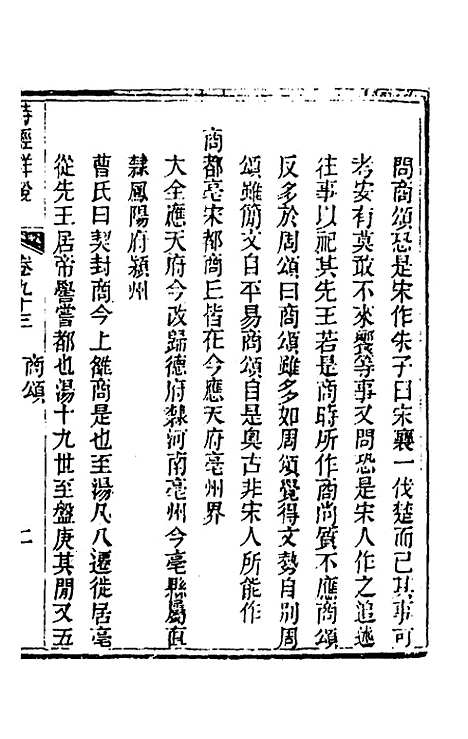 問商頌恐是宋作朱子曰宋襄一伐楚而已其事可
考安有莫敢不來饗等事又問恐是宋人作之追述
往事以祀其先王若是商時所作商尚質不應商頌
反多於周頌曰商頌雖多如周頌覺得文勢自別周
頌雖簡文自平易商頌自是奧古非宋人所能作
商都亳宋都商丘皆在今應天府亳州界
大全應天府今改歸德府隸河南亳州今亳縣屬直
隸鳳陽府潁州
曹氏曰契封商今上雒商是也至湯凡八遷徙居亳
從先王居帝嚳嘗都也湯十九世至盤庚其閒又五
詩經詳說 卷九十三 商頌 二